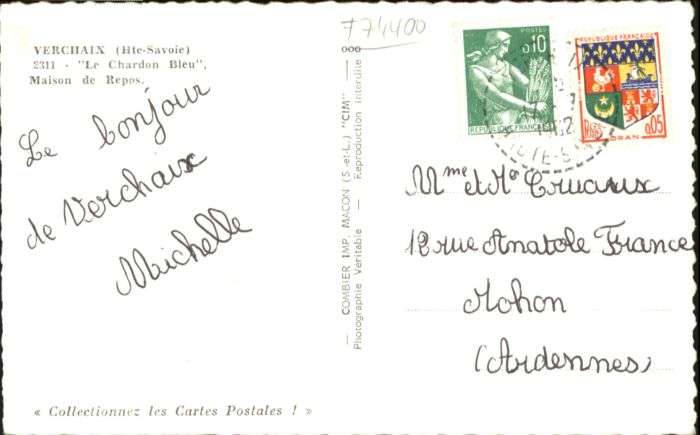 774400
VERCHAIX (Hte-Savoie)
2311 - "Le Chardon Bleu",
Maison de Repos.
Le bonjour
de Verchaix
Michelle
« Collectionnez les Cartes Postales ! »
ooo
— COMBIER IMP. MACON (S.-et-L.) "CIM" —
Photographie Véritable — Reproduction interdite
POSTES
0,10
REPUBLIQUE FRANÇAISE
REPUBLIQUE FRANÇAISE
POSTES
0,05
ORAN
HTE-S
Mme et Mr Cruaux
12 rue Anatole France
Mohon
(Ardennes)